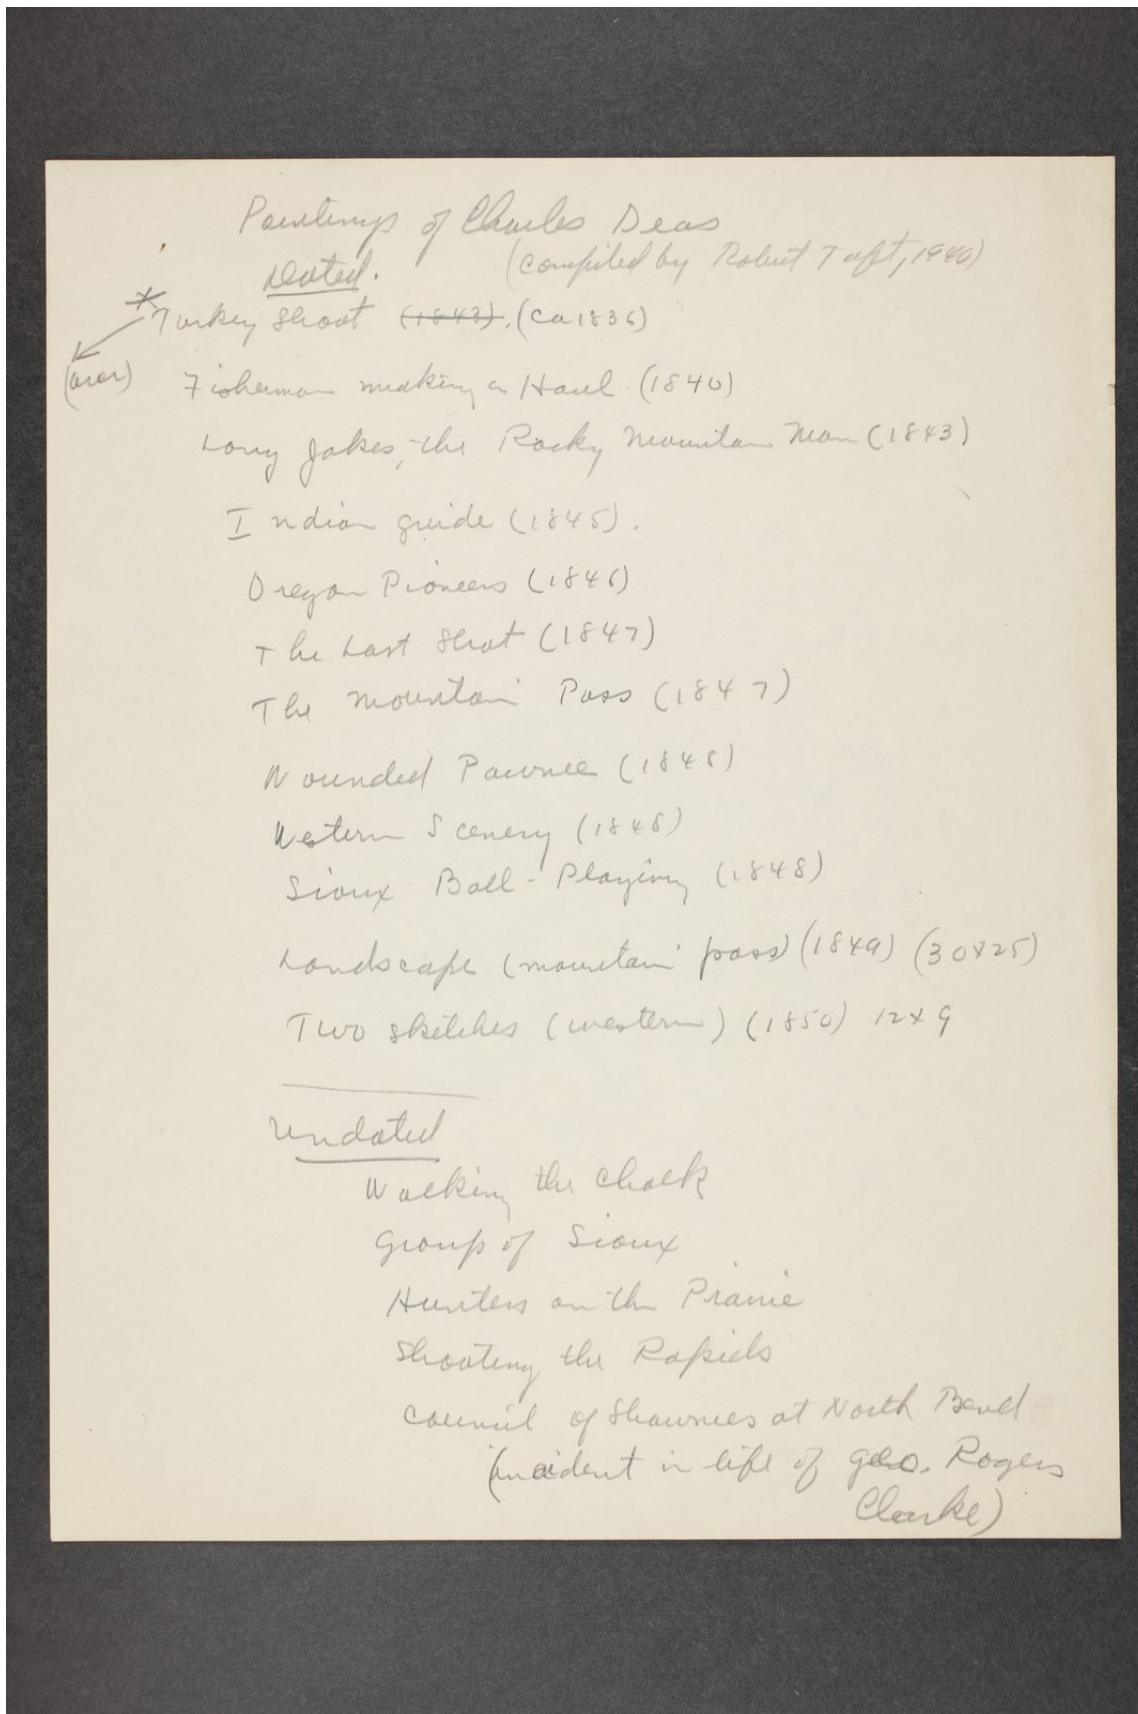 Paintings of Charles Deas
(compiled by Robert Taft, 1940)
Dated.
* Turkey Shoot (1843). (ca 1836)
(over)
Fisherman making a Haul (1840)
Long Jakes, the Rocky Mountain Man (1843)
Indian guide (1845).
Oregon Pioneers (1846)
The Last Shot (1847)
The Mountain Pass (1847)
Wounded Pawnee (1848)
Western Scenery (1848)
Sioux Ball-Playing (1848)
Landscape (mountain pass) (1849) (30x25)
Two sketches (western) (1850) 12x9
Undated
Walking the Chalk
Group of Sioux
Hunters on the Prairie
Shooting the Rapids
Council of Shawnees at North Bend
(incident in life of Geo. Rogers
Clarke)